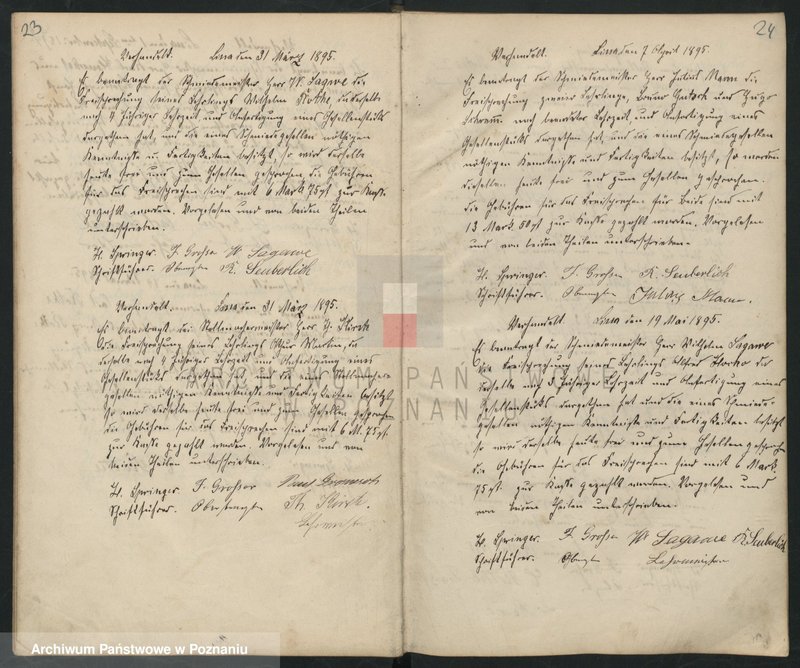 23
Verhandelt. Lissa den 31 März 1895.
Es beantragt der Schmiedemeister Herr W. Sagawe die
Freisprechung seines Lehrlings Wilhelm Kothe, da derselbe
nach 4 jähriger Lehrzeit und Anfertigung eines Gesellenstücks
dargethan hat, und die eines Schmiedegesellen nöthigen
Kenntnisse u. Fertigkeiten besitzt, so wird derselbe
heute frei und zum Gesellen gesprochen, die Gebühren
für das Freisprechen sind mit 6 Mark 75 pf zur Kasse
gezahlt worden. Vorgelesen und von beiden Theilen
unterschrieben.
H. Springer. F. Grosser W Sagawe
Schriftführer. R. Seuberlich
Verhandelt. Lissa den 31 März 1895.
Es beantragt der Stellmachermeister Herr
die Freisprechung seines Lehrlings
derselbe nach jähriger Lehrzeit und Anfertigung eines
Gesellenstücks dargethan hat, und die eines Stellmacher-
gesellen nöthigen Kenntnisse und Fertigkeiten besitzt
so wird derselbe heute frei und zum Gesellen gesprochen
die Gebühren für das Freisprechen sind mit 6 M. 75 pf.
zur Kasse gezahlt worden. Vorgelesen und von
beiden Theilen unterschrieben.
H. Springer. F. Grosser
Schriftführer.
24
Verhandelt. Lissa den 7 April 1895.
Es beantragt der Schmiedemeister Herr Julius Mann die
Freisprechung zweier Lehrlinge, Bruno und Hugo
nach beendeter Lehrzeit und Anfertigung eines
Gesellenstücks dargethan hat, und die eines Schmiedegesellen
nöthigen Kenntnisse und Fertigkeiten besitzt, so werden
dieselben heute frei und zum Gesellen gesprochen.
die Gebühren für das Freisprechen für beide sind mit
13 Mark 50 pf zur Kasse gezahlt worden. Vorgelesen
und von beiden Theilen unterschrieben.
H. Springer. F. Grosser R. Seuberlich
Schriftführer. Julius Mann.
Verhandelt Lissa den 19 Mai 1895.
Es beantragt der Schmiedemeister Herr Wilhelm Sagawe
die Freisprechung seines Lehrlings da
derselbe nach 3 jähriger Lehrzeit und Anfertigung eines
Gesellenstücks dargethan hat und die eines Schmiede-
gesellen nöthigen Kenntnisse und Fertigkeiten besitzt
so wird derselbe heute frei und zum Gesellen gesprochen
die Gebühren für das Freisprechen sind mit 6 Mark
75 pf. zur Kasse gezahlt worden. Vorgelesen und
von beiden Theilen unterschrieben.
H. Springer. F. Grosser W Sagawe R. Seuberlich
Schriftführer.
Archiwum Państwowe w Poznaniu